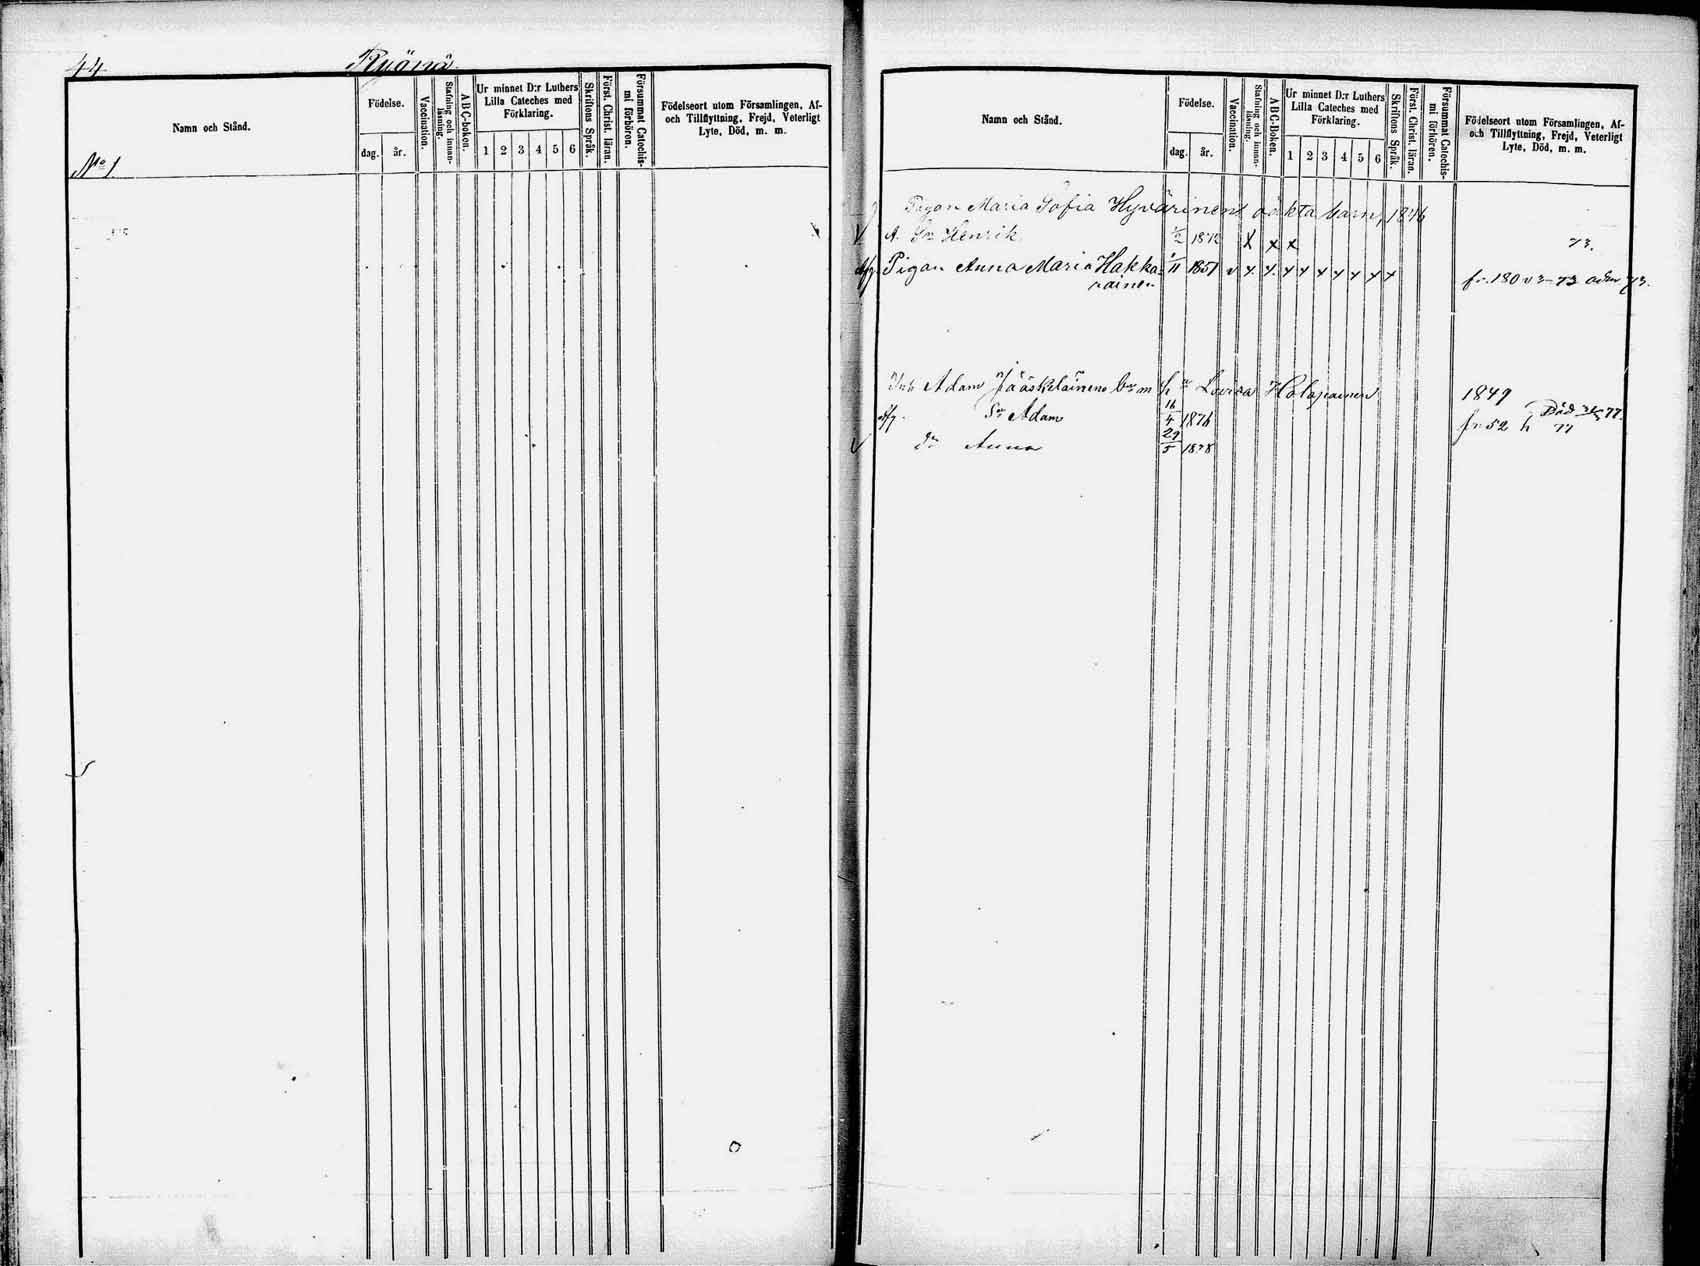 44 Ryönä
Namn och Stånd.
Födelse.
dag. år.
Vaccination.
Stafning och innan-läsning.
ABC-boken.
Ur minnet D:r Luthers
Lilla Cateches med
Förklaring.
1 2 3 4 5 6
Skriftens Språk.
Först. Christ. läran.
Försummat Catechis-
mi förhören.
Födelseort utom Församlingen, Af-
och Tillflyttning, Frejd, Veterligt
Lyte, Död, m. m.
No 1
Namn och Stånd.
Födelse.
dag. år.
Vaccination.
Stafning och innan-läsning.
ABC-boken.
Ur minnet D:r Luthers
Lilla Cateches med
Förklaring.
1 2 3 4 5 6
Skriftens Språk.
Först. Christ. läran.
Försummat Catechis-
mi förhören.
Födelseort utom Församlingen, Af-
och Tillflyttning, Frejd, Veterligt
Lyte, Död, m. m.
Pigan Maria Sofia Hyvärinens oäkta barn, 1846
A. Sn Henrik 1872 x x x 73.
Pigan Anna Maria Hakka- 1/11 1851 v x x x x x x x x x fr. 180 73
rainen
Inh Adam Jääskeläinens barn h a Lovisa Holopainen 1849
Sn Adam 16/4 1876 fr. 52 h 77 Död 77.
Dr Anna 29/5 1878